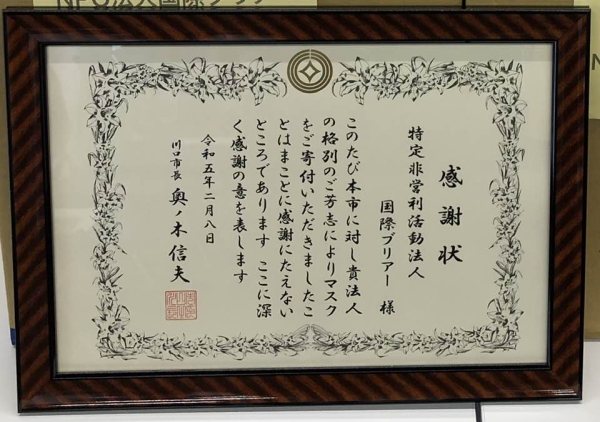 NPO法人国際ブリアー
感謝状
特定非営利活動法人
国際ブリアー 様
このたび本市に対し貴法人
の格別のご芳志によりマスク
をご寄付いただきましたこ
とはまことに感謝にたえない
ところであります ここに深
く感謝の意を表します
令和五年二月八日
川口市長 奥ノ木信夫